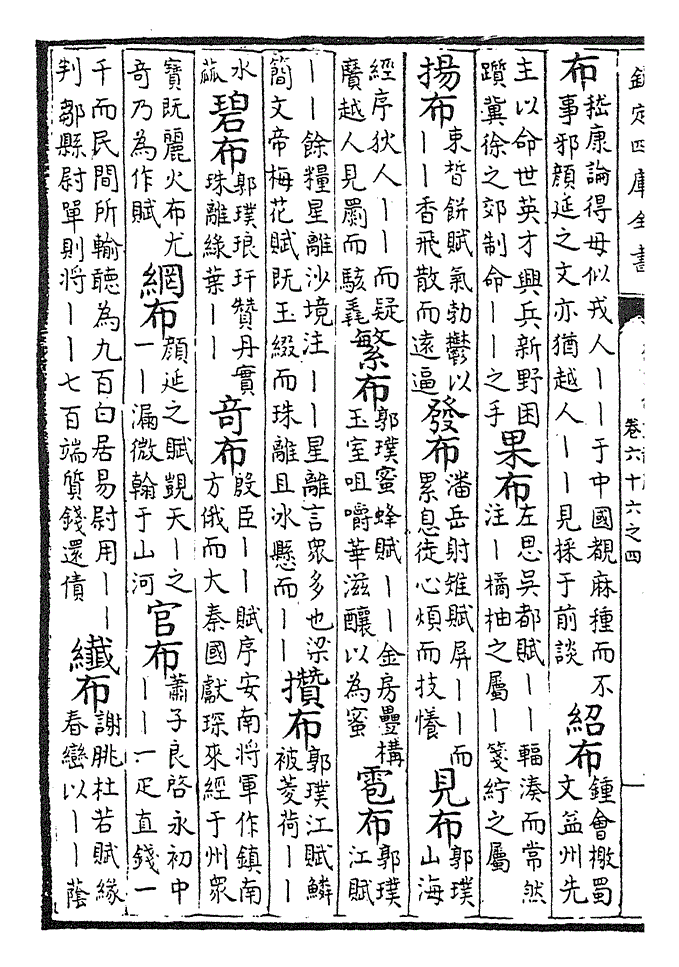 欽定四庫全書
卷六十六之四
布
嵇康論得毋似戎人丨丨于中國覩麻種而不
事邪顔延之文亦猶越人丨丨見採于前談
紹布
鍾會檄蜀
文益州先
主以命世英才興兵新野困
躓冀徐之郊制命丨丨之手
果布
左思吳都賦丨丨輻湊而常然
注丨橘柚之屬丨箋紵之屬
揚布
束晳餅賦氣勃鬱以
丨丨香飛散而遠遍
發布
潘岳射雉賦屏丨丨而
累息徒心煩而技懩
見布
郭璞
山海
經序狄人丨丨而疑
黂越人見罽而駭毳
繁布
郭璞蜜蜂賦丨丨金房疊構
玉室咀嚼華滋釀以為蜜
雹布
郭璞
江賦
丨丨餘糧星離沙境注丨丨星離言衆多也梁
簡文帝梅花賦既玉綴而珠離且冰懸而丨丨
攢布
郭璞江賦鱗
被菱荷丨丨
水
蓏
碧布
郭璞琅玕贊丹實
珠離緑葉丨丨
奇布
殷臣丨丨賦序安南將軍作鎮南
方俄而大秦國獻琛來經于州衆
寶既麗火布尤
奇乃為作賦
網布
顔延之賦覬天丨之
丨漏微翰于山河
官布
蕭子良啓永初中
丨丨一疋直錢一
千而民間所輸聽為九百白居易尉用丨丨
判鄒縣尉單則將丨丨七百端質錢還債
纖布
謝朓杜若賦緣
春巒以丨丨蔭